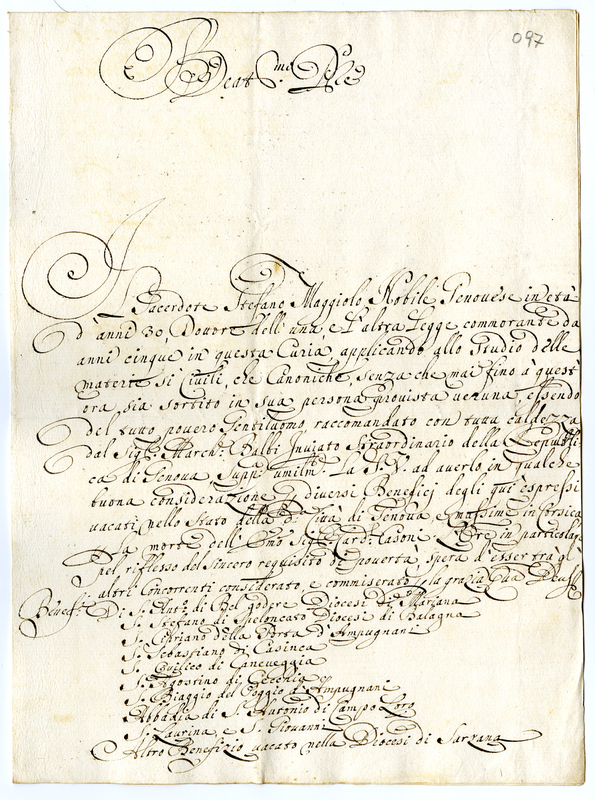 097
Beat.mo Pre
Il Sacerdote Stefano Maggiolo Nobile Genovese in età
d'anni 30, Dottore dell'una, e l'altra Legge commorante da
anni cinque in questa Curia, applicando allo studio delle
materie sì Civili, che Canoniche, senza che mai fino a quest'
ora sia sortito in sua persona provista veruna, essendo
del tutto povero Gentiluomo, raccomandato con tutta caldezza
dal Sig.r March.e Balbi Inviato Straordinario della Republi
ca di Genova, supp.a umilm.te La S.V. ad averlo in qualche
buona considerazione diversi Beneficj degli qui espressi
vacati nello Stato della d.a Città di Genova, e massime in Corsica
la morte dell' Emo Sig.r Card. Casoni. Oltre in particolar
pel riflesso del sincero requisito di povertà, spera d'esser tra gl'
altri Concorrenti considerato, e commiserato, la grazia Qua Deus
Benefi Di S. Ant.o di Belgodere Diocesi di Mariana
S. Stefano di Speloncato Diocesi di Balagna
S. Cipriano della Porta d'Ampugnani
S. Sebastiano di Casinca
S. Quilico di Caneveggia
S. Agostino di
S. Biaggio del Poggio d'Ampugnani
Abbadia di S. Antonio di Campo Loro
S. Laurina, e S. Giovanni
Altro Benefizio vacato nella Diocesi di Sarzana